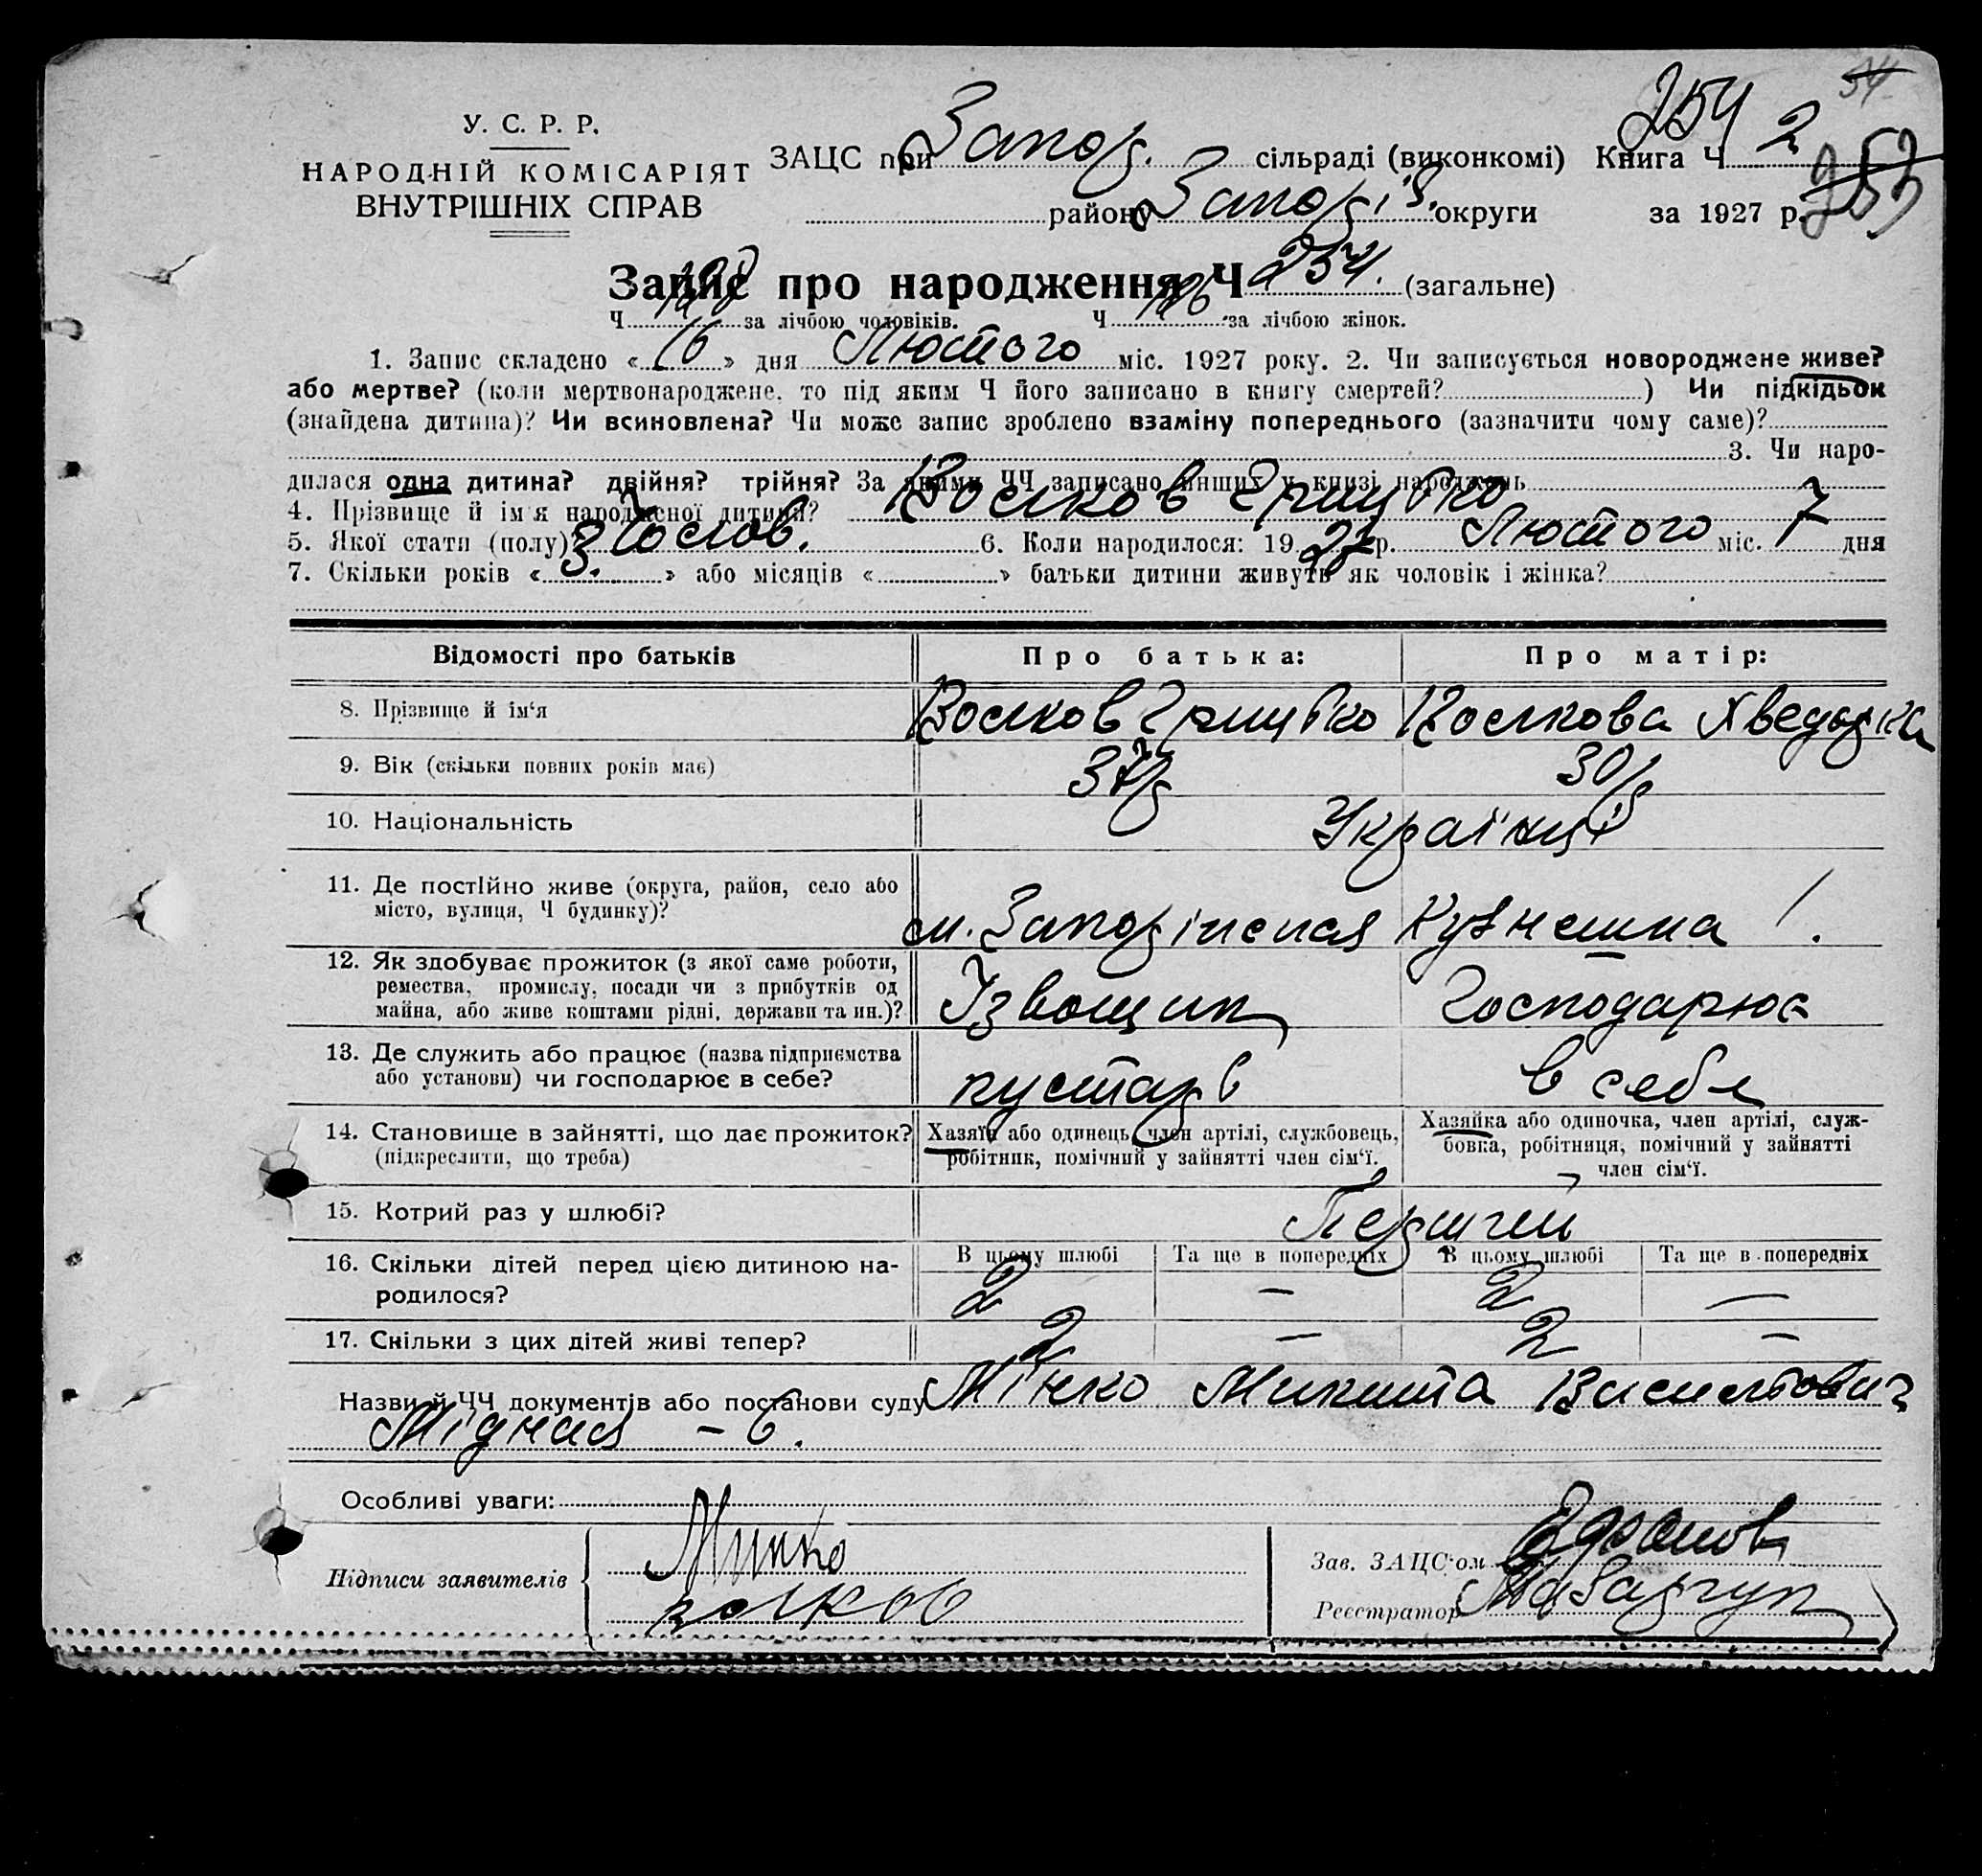 254
У. С. Р. Р.
НАРОДНІЙ КОМІСАРІЯТ
ВНУТРІШНІХ СПРАВ
ЗАЦС при Запор. сільраді (виконкомі) Книга Ч 2
району Запоріз. округи за 1927 р. 253
Запис про народження Ч 254. (загальне)
Ч 128 за лічбою чоловіків. Ч 126 за лічбою жінок.
1. Запис складено «16» дня Лютого міс. 1927 року. 2. Чи записується новороджене живе?
або мертве? (коли мертвонароджене, то під яким Ч його записано в книгу смертей? ) Чи підкідьок
(знайдена дитина)? Чи всиновлена? Чи може запис зроблено взаміну попереднього (зазначити чому саме)?
3. Чи наро-
дилася одна дитина? двійня? трійня? За якими ЧЧ записано инших у книзі народжень
4. Прізвище й імʼя народженої дитини? Волков Грицько
5. Якої стати (полу)? Чослов. 6. Коли народилося: 1927 р. Лютого міс. 7 дня
7. Скільки років «3.» або місяців « » батьки дитини живуть як чоловік і жінка?
Відомості про батьків Про батька: Про матір:
8. Прізвище й ім‘я Волков Грицько Волкова Хведорка
9. Вік (скільки повних років має) 37 р 30 р
10. Національність Українці
11. Де постійно живе (округа, район, село або
місто, вулиця, Ч будинку)? м. Запоріжжя
12. Як здобуває прожиток (з якої саме роботи,
ремества, промислу, посади чи з прибутків од
майна, або живе коштами рідні, держави та ин.)? Ізвощик Господарює
13. Де служить або працює (назва підприємства
або установи) чи господарює в себе? кустарь в себе
14. Становище в зайнятті, що дає прожиток?
(підкреслити, що треба)
Хазяїн або одинець, член артілі, службовець,
робітник, помічний у зайнятті член сім‘ї.
Хазяйка або одиночка, член артілі, служ-
бовка, робітниця, помічний у зайнятті
член сім‘ї.
15. Котрий раз у шлюбі? Перший
В цьому шлюбі Та ще в попередніх В цьому шлюбі Та ще в попередніх
16. Скільки дітей перед цією дитиною на-
родилося? 2 — 2 —
17. Скільки з цих дітей живі тепер? 2 — 2 —
Назви й ЧЧ документів або постанови суду Мінко Микита Васильович
Мідная – 6.
Особливі уваги:
Підписи заявителів Минко
волков
Зав. ЗАЦС‘ом
Реєстратор